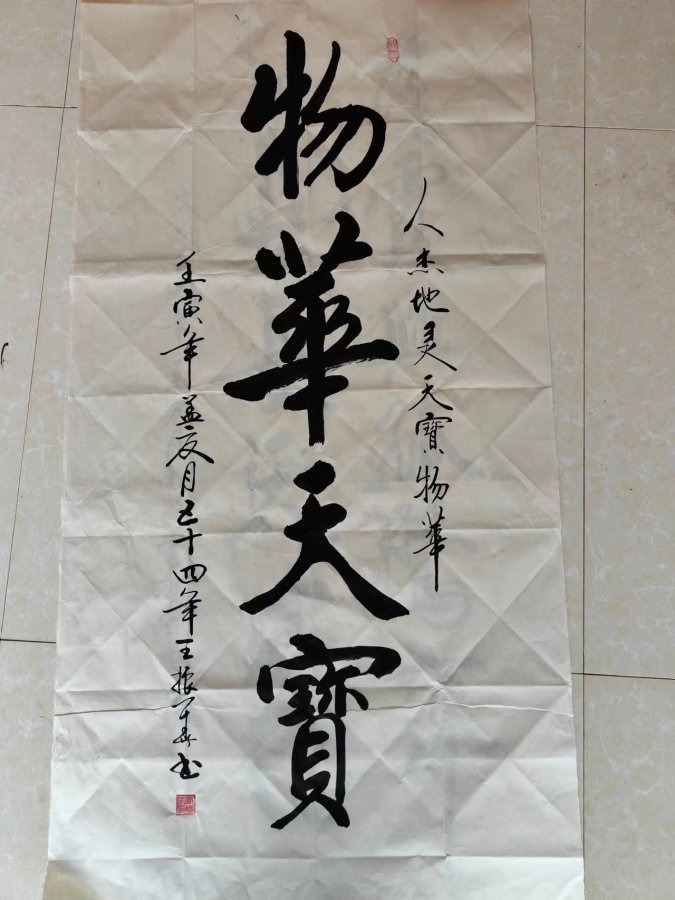 人杰地灵天寳物華
物華天寳
壬寅年孟夏月五十四年王振春书